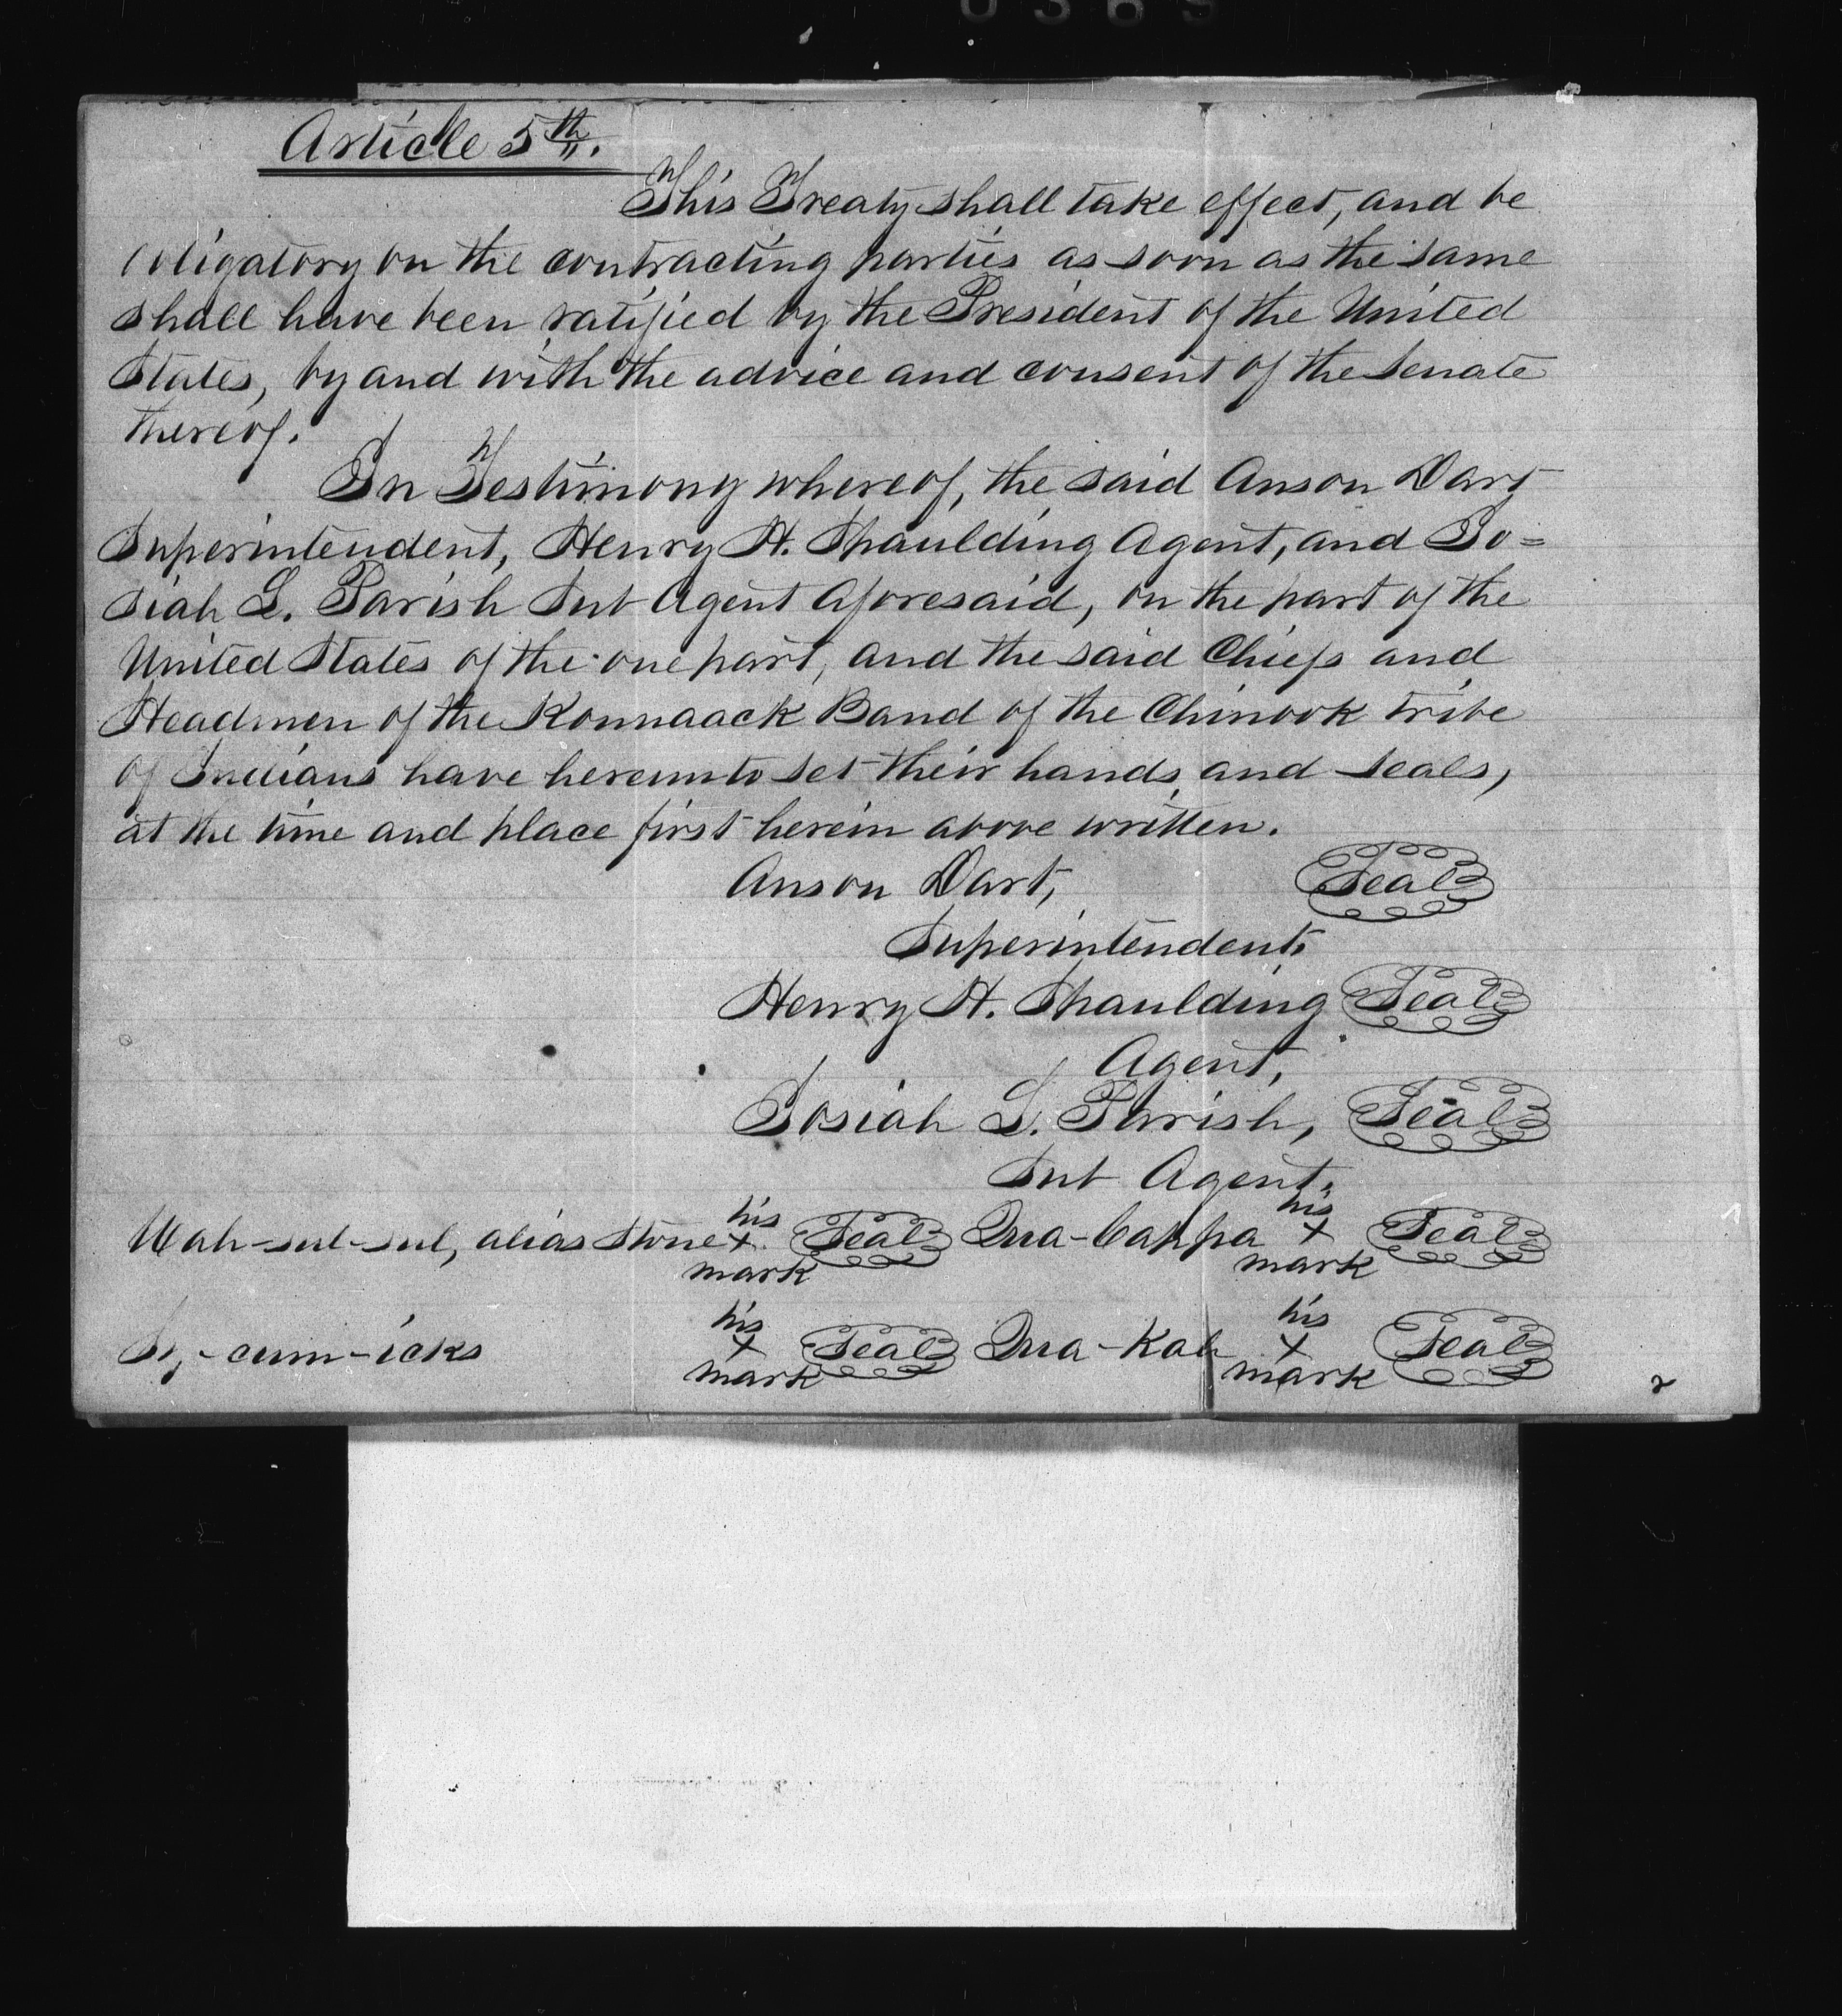 Article 5th.
This Treaty shall take effect, and be
obligatory on the contracting parties as soon as the same
shall have been ratified by the President of the United
States, by and with the advice and consent of the Senate
thereof.
In Testimony whereof, the said Anson Dart
Superintendent, Henry H. Spaulding Agent, and Jo=
siah L. Parish Sub Agent aforesaid, on the part of the
United States of the one part, and the said Chiefs and
Headmen of the Konnaack Band of the Chinook tribe
of Indians have hereunto set their hands and seals,
at the time and place first herein above written.
Anson Dart, Seal
Superintendent.
Henry H. Spaulding Seal
Agent,
Josiah L. Parish, Seal
Sub Agent.
Wah-sul-sul, alias Stone his x mark Seal Qua-Cappa his x mark Seal
-cum-icks his x mark Seal Qua-Kah his x mark Seal